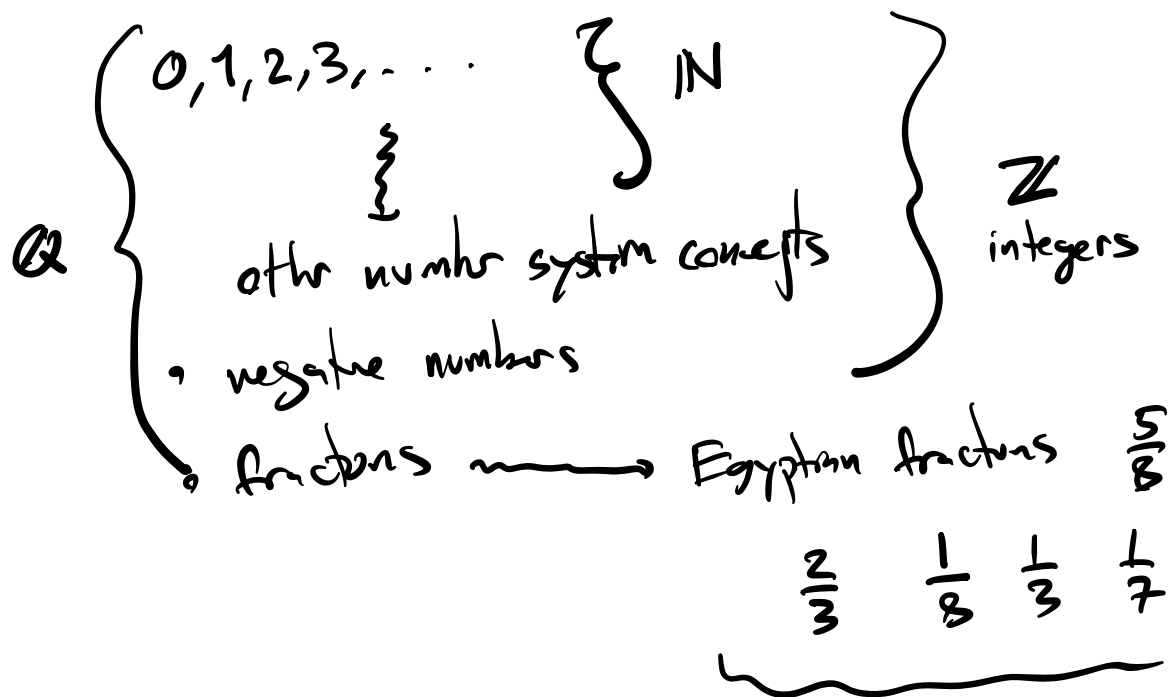 0, 1, 2, 3, . . . . } ℕ
ℚ { } ℤ
other number system concepts integers
• negative numbers
• fractions ⟶ Egyptian fractions 5/8
2/3 1/8 1/3 1/7